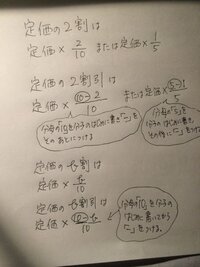 定価の2割は
定価×2/10 または定価×1/5
定価の2割引は
定価×10-2/10 または定価×5-1/5
分母の「10」を分子のはじめに書き「-」をそのあとにつける
分母の「5」を分子のはじめに書き、その後に「-」をつける。
定価のん割は
定価×ん/10
定価のん割引は
定価×10-ん/10
分母の「10」を分子のはじめに書いてから「-」をつける。